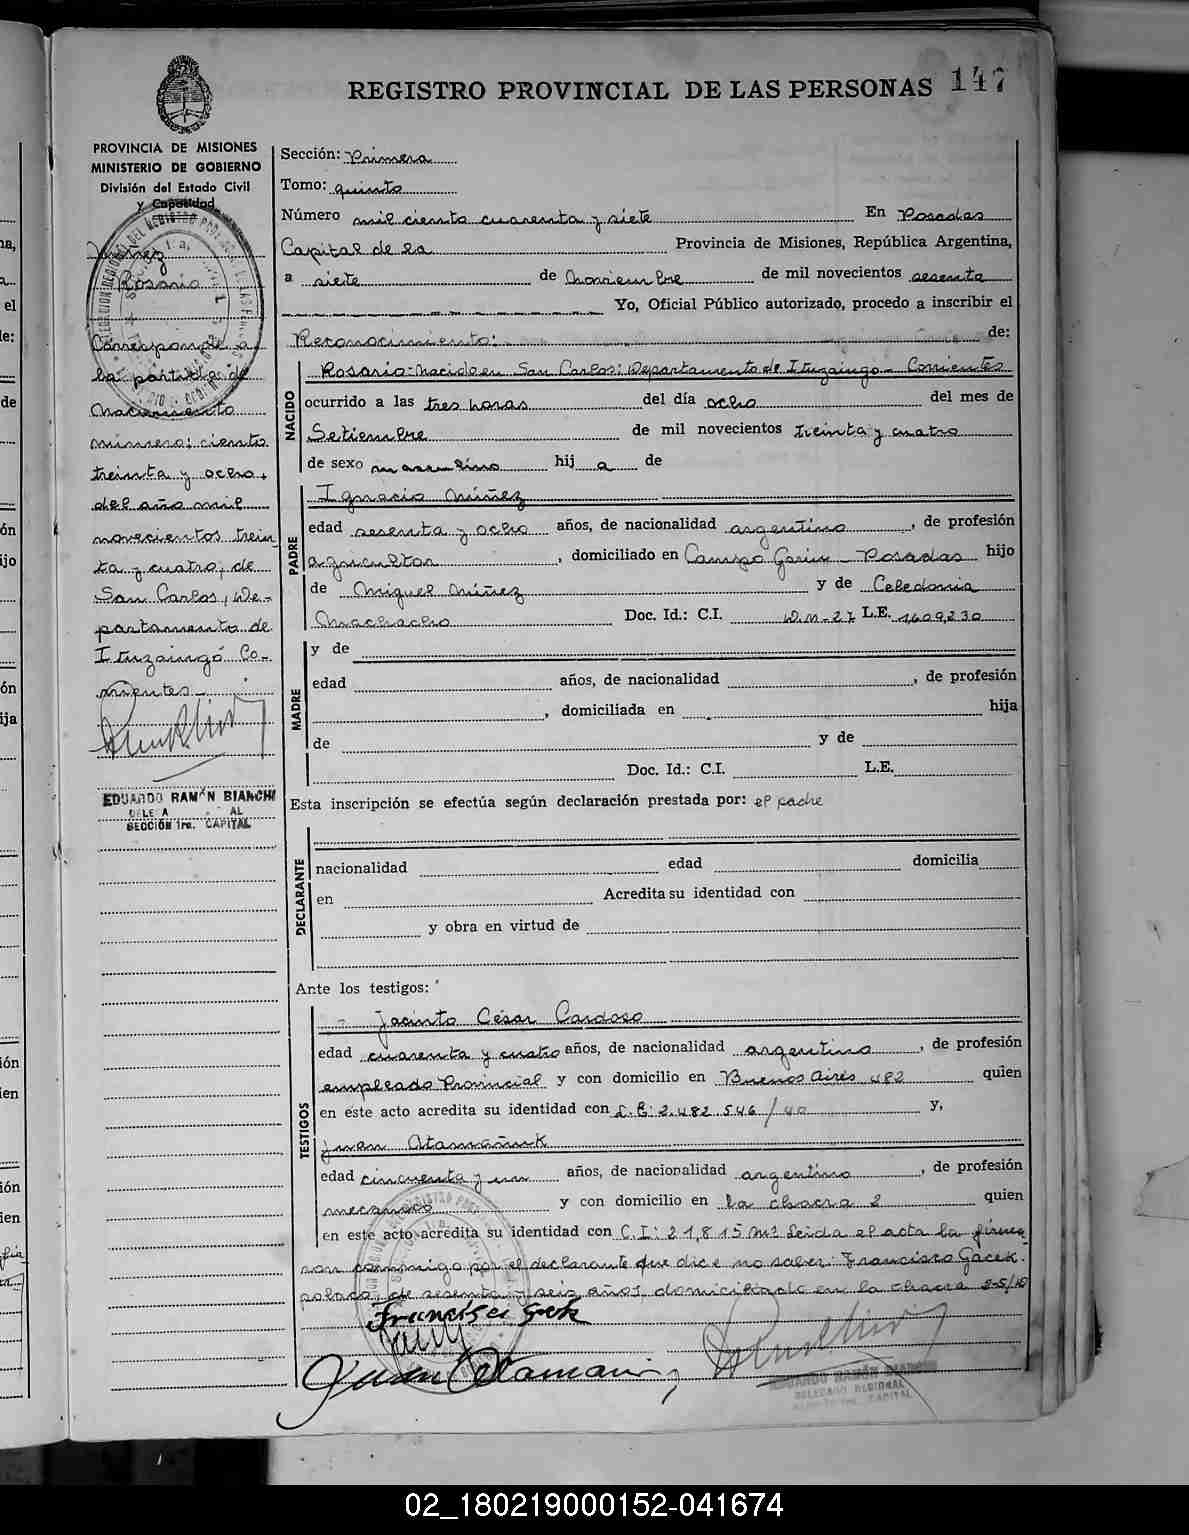 REGISTRO PROVINCIAL DE LAS PERSONAS 147
PROVINCIA DE MISIONES
MINISTERIO DE GOBIERNO
División del Estado Civil
y Capacidad
Núñez
Rosario
Corresponde a
la partida de
Nacimiento
número: ciento
treinta y ocho,
del año mil
novecientos trein
ta y cuatro, de
San Carlos, De-
partamento de
Ituzaingó Co-
rrientes
EDUARDO RAMÓN BIANCHI
SECCIÓN 1ra. CAPITAL
Sección: Primera
Tomo: quinto
Número mil ciento cuarenta y siete En Posadas
Capital de la Provincia de Misiones, República Argentina,
a siete de Noviembre de mil novecientos sesenta
Yo, Oficial Público autorizado, procedo a inscribir el
Reconocimiento: de:
NACIDO
Rosario-Nacido en San Carlos: Departamento de Ituzaingo - Corrientes
ocurrido a las tres horas del día ocho del mes de
Setiembre de mil novecientos treinta y cuatro
de sexo masculino hij a de
PADRE
Ignacio Núñez
edad sesenta y ocho años, de nacionalidad argentino, de profesión
agricultor, domiciliado en Campo Posadas hijo
de Miguel Núñez y de Celedonia
Machacho Doc. Id.: C.I. D.M-27 L.E. 1609,230
MADRE
y de
edad años, de nacionalidad , de profesión
, domiciliada en hija
de y de
Doc. Id.: C.I. L.E.
Esta inscripción se efectúa según declaración prestada por: el padre
DECLARANTE
nacionalidad edad domicilia
en Acredita su identidad con
y obra en virtud de
Ante los testigos:
TESTIGOS
Jacinto César Cardoso
edad cuarenta y cuatro años, de nacionalidad argentino, de profesión
empleado Provincial y con domicilio en Buenos Aires 482 quien
en este acto acredita su identidad con L.E: 2.482.546/40 y,
Juan Atamañuk
edad cincuenta y un años, de nacionalidad argentino, de profesión
mecanico y con domicilio en la chacra 2 quien
en este acto acredita su identidad con C.I: 21,815 Ms Leida el acta la firma
ron conmigo por el declarante que dice no saber: Francisco Gacek.
polaco, de sesenta y seis años, domiciliado en la chacra
Francisco Gacek
EDUARDO RAMÓN BIANCHI
DELEGADO REGIONAL
02_180219000152-041674